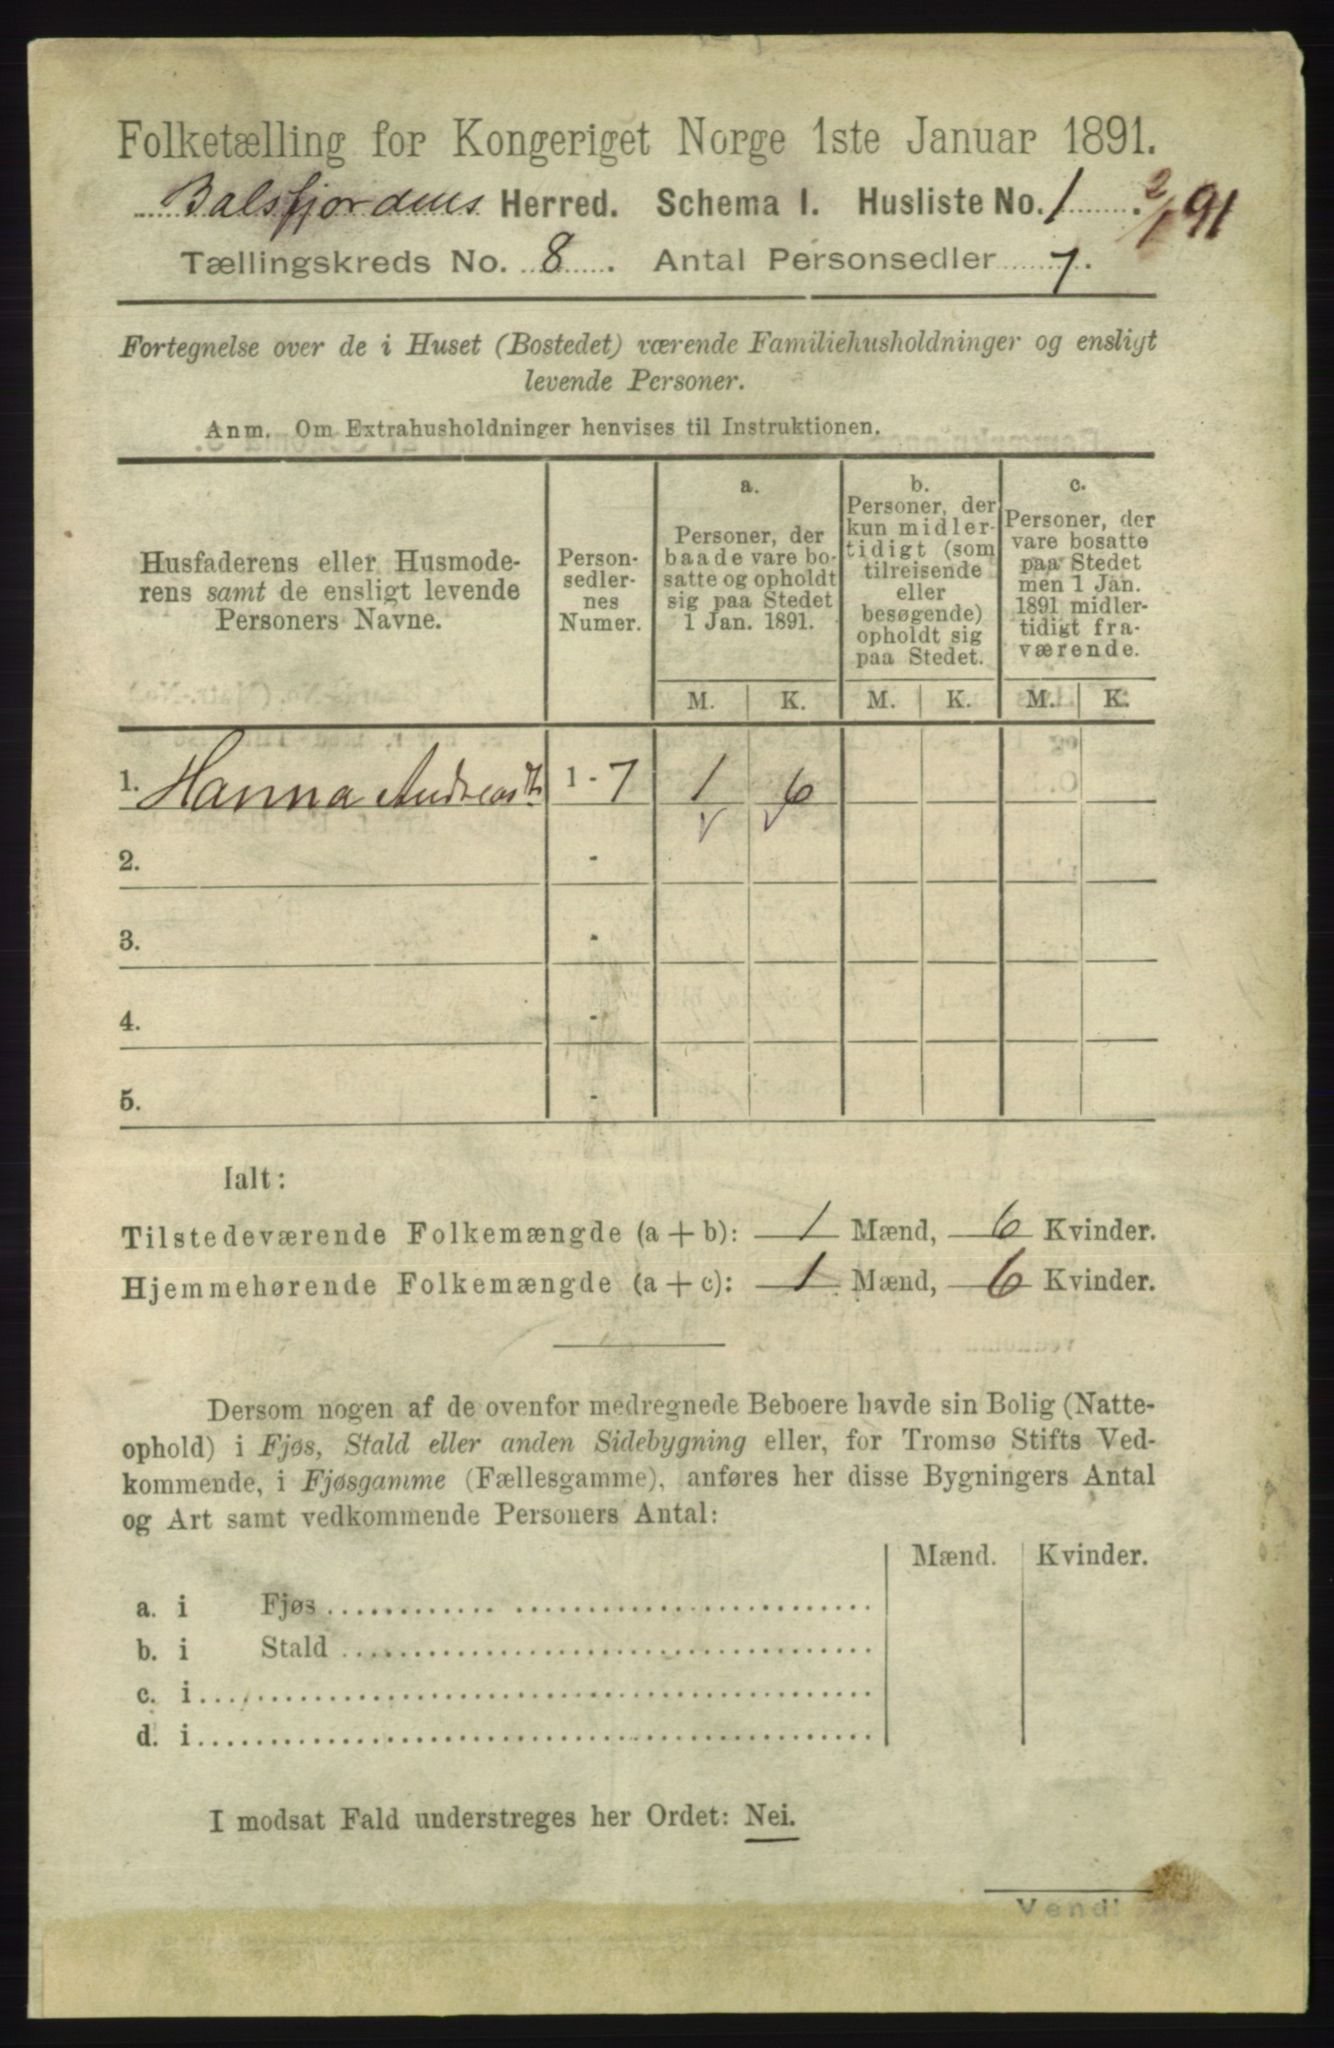 Folketælling for Kongeriget Norge 1ste Januar 1891.
Balsfjordens Herred. Schema I. Husliste No. 1. 2/1 91
Tællingskreds No. 8. Antal Personsedler 7.
Fortegnelse over de i Huset (Bostedet) værende Familiehusholdninger og ensligt
levende Personer.
Anm. Om Extrahusholdninger henvises til Instruktionen.
Husfaderens eller Husmode-
rens samt de ensligt levende
Personers Navne.
Person-
sedler-
nes
Numer.
a.
Personer, der
baade vare bo-
satte og opholdt
sig paa Stedet
1 Jan. 1891.
b.
Personer, der
kun midler-
tidigt (som
tilreisende
eller
besøgende)
opholdt sig
paa Stedet.
c.
Personer, der
vare bosatte
paa Stedet
men 1 Jan.
1891 midler-
tidigt fra-
værende.
M. K. M. K. M. K.
1. Hanna Andreasdtr 1 - 7 1 6
2. -
3. -
4. -
5. -
Ialt:
Tilstedeværende Folkemængde (a + b): 1 Mænd, 6 Kvinder.
Hjemmehørende Folkemængde (a + c): 1 Mænd, 6 Kvinder.
Dersom nogen af de ovenfor medregnede Beboere havde sin Bolig (Natte-
ophold) i Fjøs, Stald eller anden Sidebygning eller, for Tromsø Stifts Ved-
kommende, i Fjøsgamme (Fællesgamme), anføres her disse Bygningers Antal
og Art samt vedkommende Personers Antal:
Mænd. Kvinder.
a. i Fjøs
b. i Stald
c. i
d. i
I modsat Fald understreges her Ordet: Nei.
Vend!